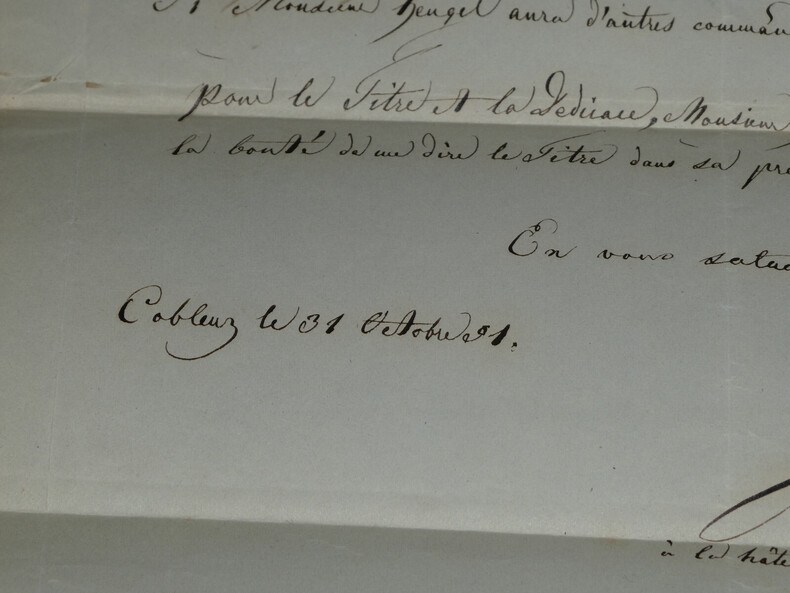 Si Monsieur Hengel aura d'autres comman
pour le Titre et la Dedicace, Monsieur
la bonté de me dire le Titre dans sa pre
En vous salua
Coblenz le 31 Octobre 51.
à la hâte